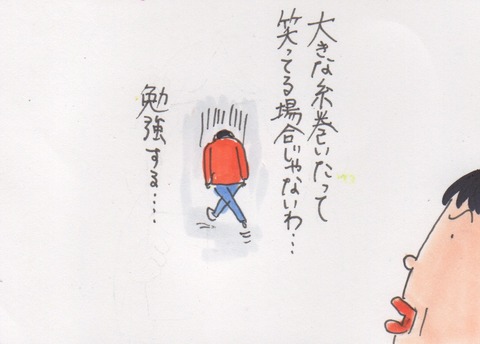 大きな糸巻いたって
笑ってる場合じゃないわ…
勉強する….